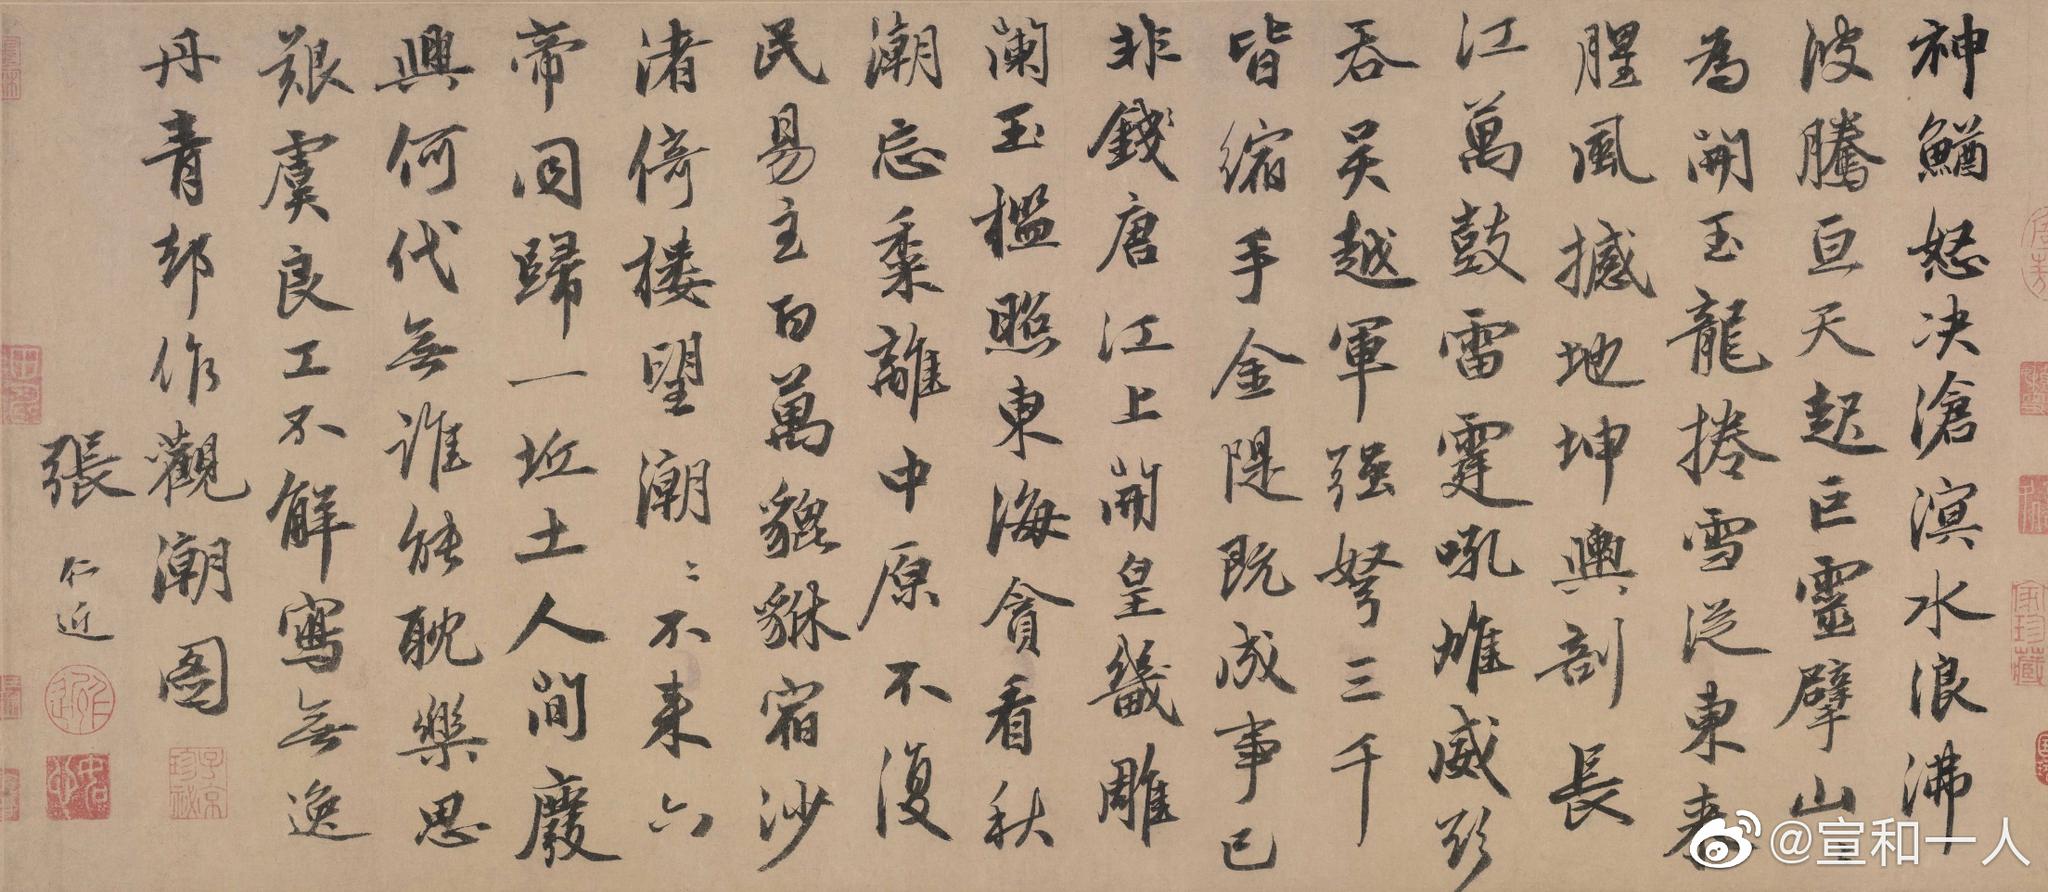 神鰌怒決滄溟水浪沸
波騰亘天起巨靈擘山
為開玉龍捲雪從東來
腥風撼地坤輿剖長
江萬鼓雷霆吼雄威欲
吞吴越軍强弩三千
皆縮手金隄既成事已
非錢唐江上開皇畿雕
闌玉檻照東海貪看秋
潮忘黍離中原不復
民易主百萬貔貅宿沙
渚倚楼望潮〻不来六
帝同歸一丘土人間廢
興何代無誰能耽樂思
艱虞良工不解寫無逸
丹青却作觀潮圖
張 仁近
子京珍祕
@宣和一人